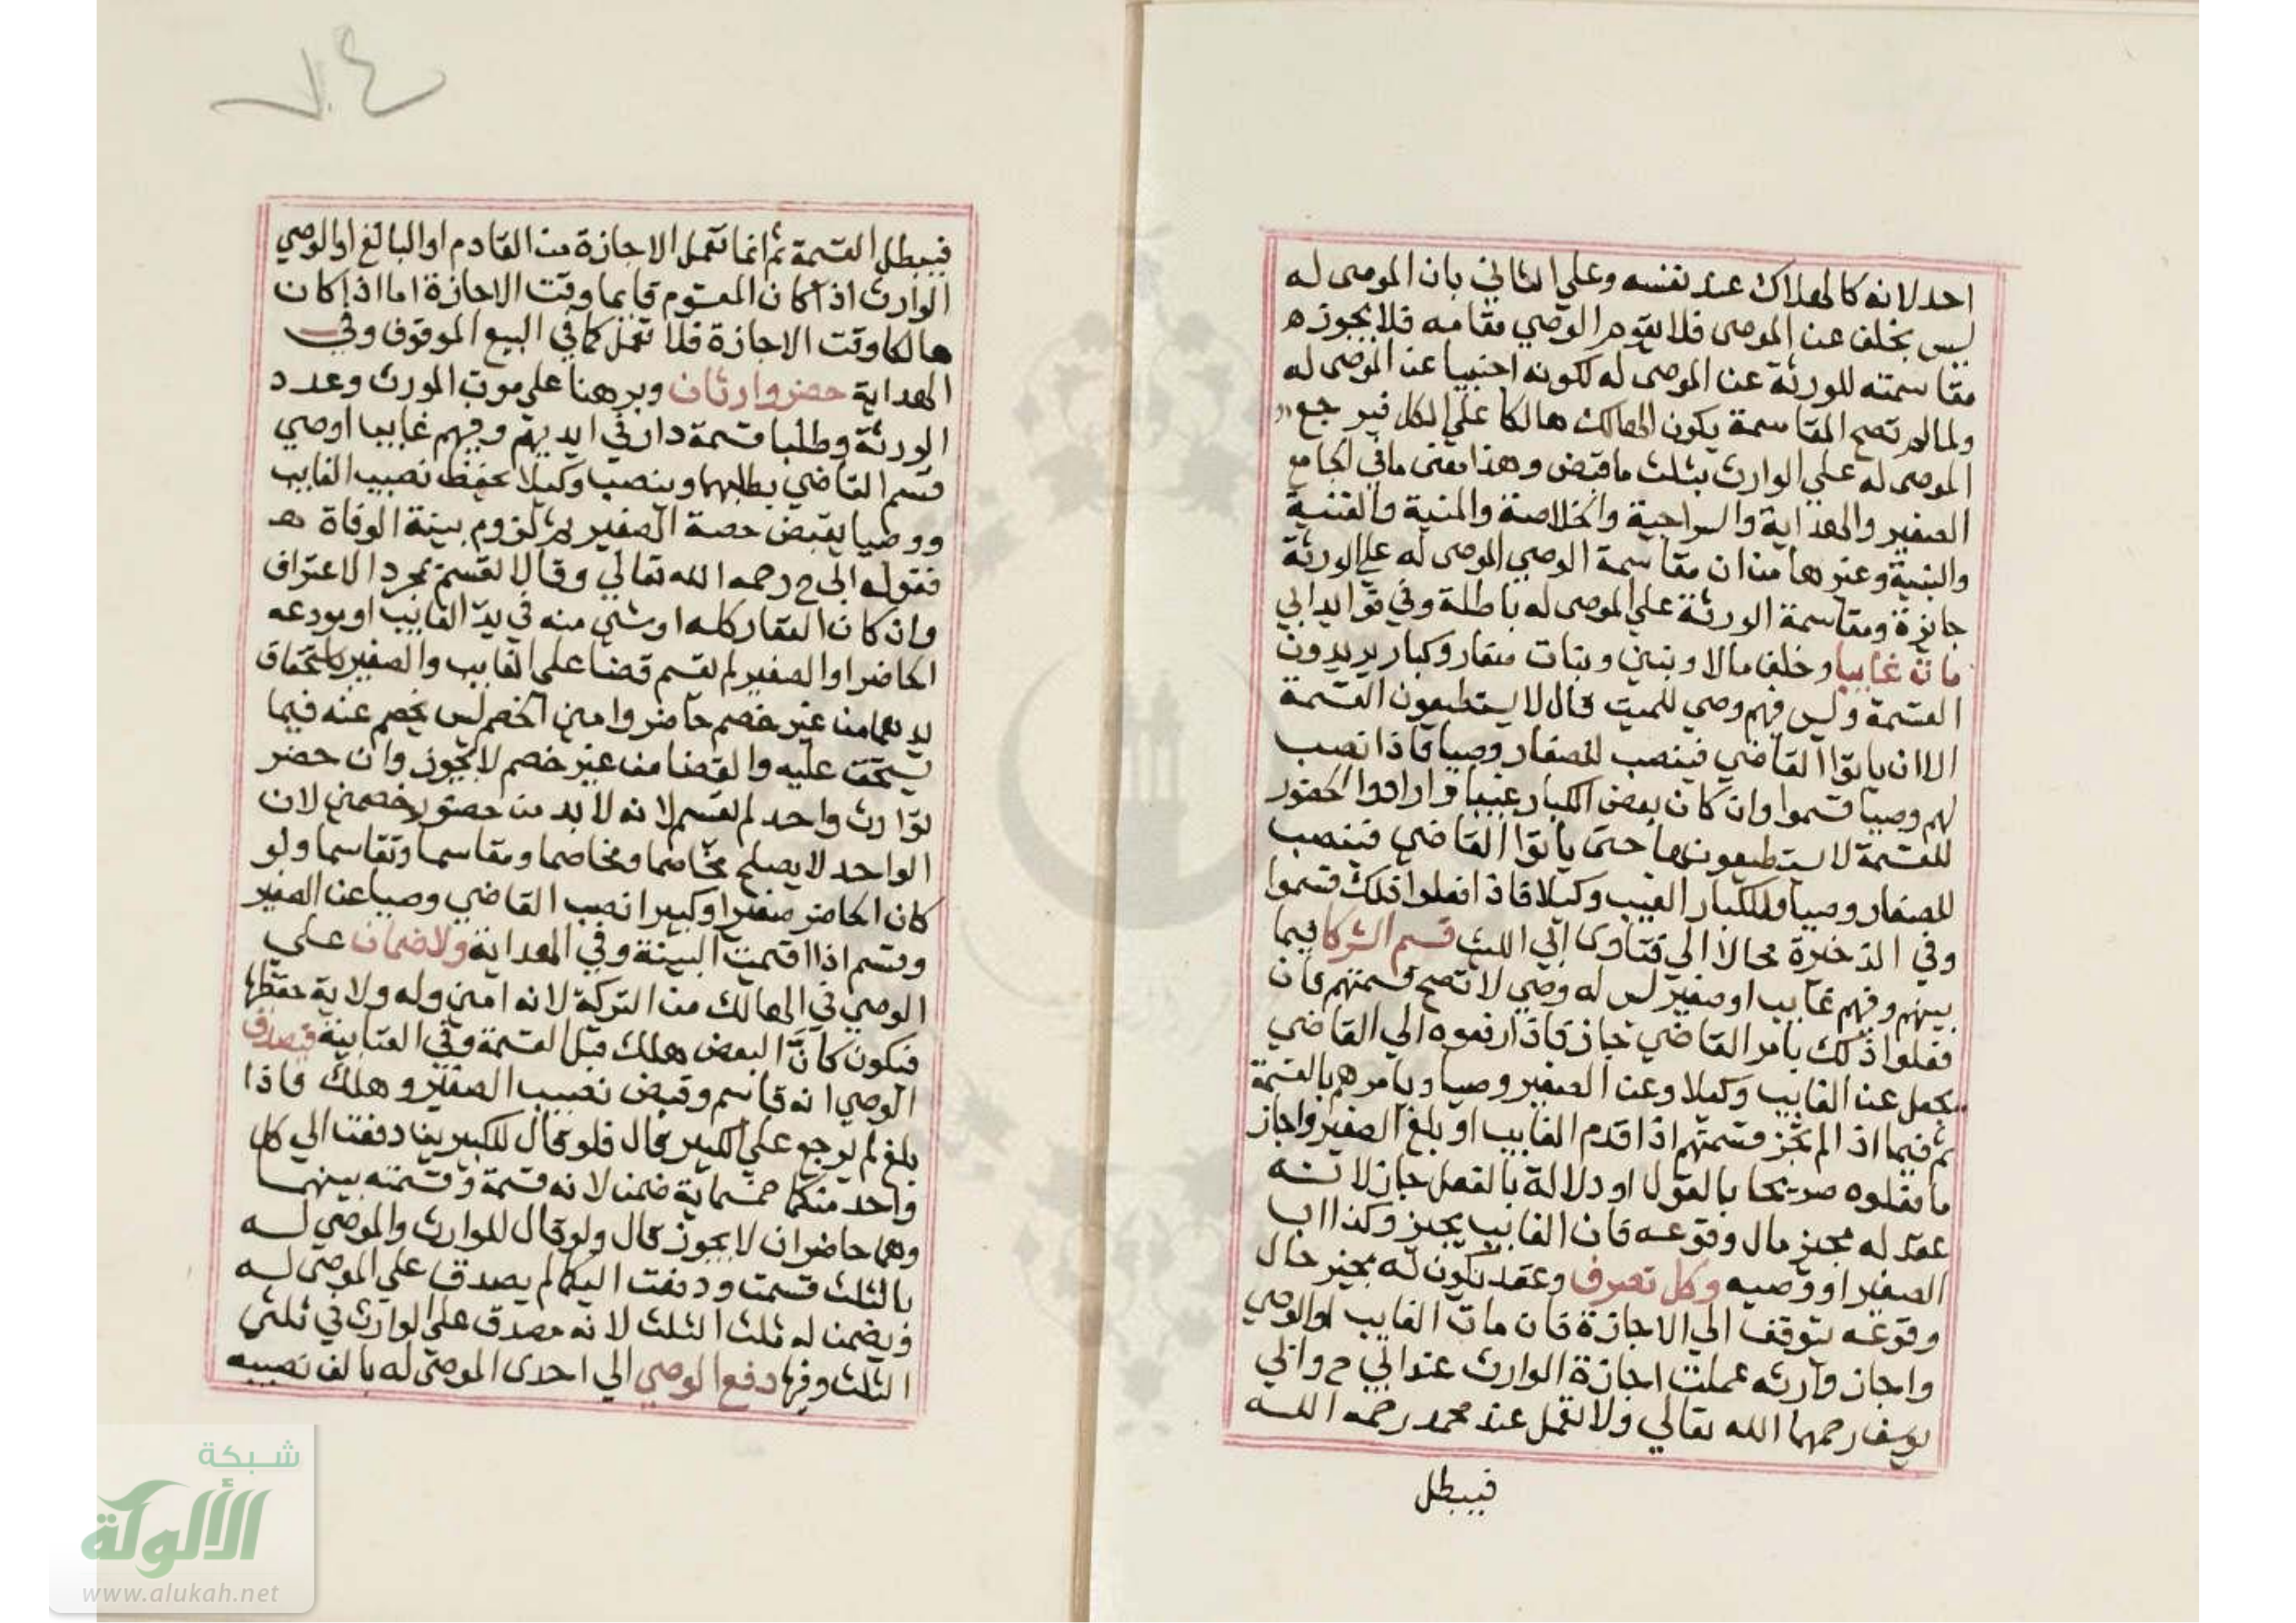 احد لانه كالهلاك عند نفسه وعلي الثاني بان الموصى له
ليس بخلف عن الموصى فلا يقوم الوصي مقامه فلا يجوز ه
مقاسمته للورثة عن الموصى له لكونه اجنبيا عن الموصى له
ولما لم تصح المقاسمة يكون الهالك هالكا علي الكل فيرجع
الموصى له علي الوارث بثلث ما قبض وهذا معنى ما في الجامع
الصغير والهداية والسراجية والخلاصة والمنية والقنية
والبنية وغيرها من ان مقاسمة الوصي الموصى له علي الورثة
جايزة ومقاسمة الورثة علي الموصى له باطلة وفي فوايد ابي
مات غايبا وخلف مالا وبنين وبنات صغار وكبار يريدون
القسمة وليس فيهم وصي للميت قال لا يستطيعون القسمة
الا ان ياتوا القاضي فينصب للصغار وصيا فاذا نصب
لهم وصيا قسموا وان كان بعض الكبار غيبا وارادوا الحضور
للقسمة لا يستطيعونها حتى ياتوا القاضي فينصب
للصغار وصيا وللكبار الغيب وكيلا فاذا فعلوا ذلك قسموا
وفي الذخيرة محالا الي فتاوى ابي الليث قسم الشركا فيما
بينهم وفيهم غايب او صغير ليس له وصي لا تصح قسمتهم فان
فعلوا ذلك بامر القاضي جاز فاذا رفعوه الي القاضي
يجعل عن الغايب وكيلا وعن الصغير وصيا ويامرهم بالقسمة
ثم فيما اذ الم تجز قسمتهم اذا قدم الغايب او بلغ الصغير واجاز
ما فعلوه صريحا بالقول او دلالة بالفعل جاز لانه
عقد له مجيز حال وقوعه فان الغايب يجيز وكذا اب
الصغير او وصيه وكل تصرف وعقد يكون له مجيز حال
وقوعه يتوقف الي الاجازة فان مات الغايب او الوصي
واجاز وارثه عملت اجازة الوارث عند ابي ح وابي
يوسف رحمهما الله تعالي ولا تعمل عند محمد رحمه الله
فيبطل
فيبطل القسمة ثم انما تعمل الاجازة من القادم او البالغ او الوصي
الوارث اذا كان المقسوم قايما وقت الاجازة اما اذا كان
هالكا وقت الاجازة فلا تعمل كما في البيع الموقوف وفي
الهداية حضر وارثان وبرهنا علي موت المورث وعدد
الورثة وطلبا قسمة دار في ايديهم وفيهم غايبا اوصي
قسم القاضي بطلبهما وينصب وكيلا يحفظ نصيب الغايب
ووصيا يقبض حصة الصغير ثم لزوم بينة الوفاة هـ
فقوله ابي ح رحمه الله تعالي وقالا القسم بمجرد الاعتراف
وان كان العقار كله او شي منه في يد الغايب او مودعه
الحاضر او الصغير لم تقسم قضا علي الغايب والصغير باستحقاق
يدهما من غير خصم حاضر وامين الخصم ليس بخصم عنه فيما
يستحق عليه والقضا من غير خصم لا يجوز وان حضر
لوارث واحد لم تقسم لانه لا بد من حضور خصمين لان
الواحد لا يصلح مخاصما ومخاصما ومقاسما وتقاسما ولو
كان الحاضر صغيرا وكبيرا نصب القاضي وصيا عن الصغير
وقسم اذا اقيمت البينة وفي الهداية ولا ضمان علي
الوصي في الهالك من التركة لانه امين وله ولاية حفظها
فيكون كانّ البعض هلك قبل القسمة وفي العتابية فيصدق
الوصي انه قاسم وقبض نصيب الصغير وهلك فاذا
بلغ لم يرجع علي الكبير قال فلو قال للكبيرين دفعت الي كل
واحد منكما خمسماية ضمن لانه قسمة وقسمته بينهما
وهما حاضران لا يجوز قال ولو قال للوارث والموصي له
بالثلث قسمت ودفعت اليكما لم يصدق علي الموصى له
ويضمن له ثلث الثلث لانه مصدق علي الوارث في ثلثي
الثلث وفيها دفع الوصي الي احدى الموصى له بالف نصيبه
شبكة
الألوكة
www.alukah.net